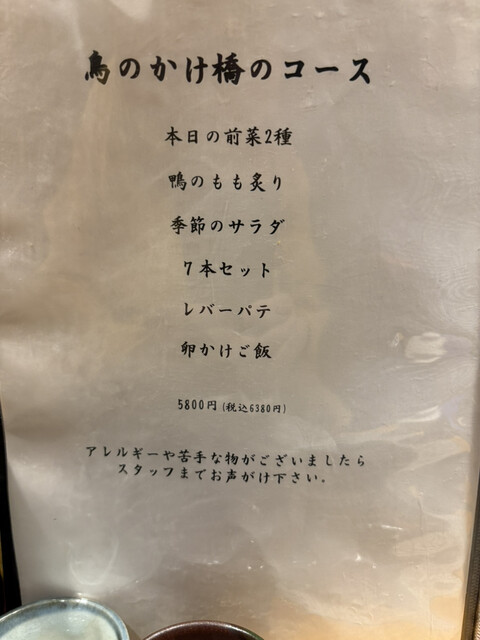 鳥のかけ橋のコース
本日の前菜2種
鴨のもも炙り
季節のサラダ
7本セット
レバーパテ
卵かけご飯
5800円(税込6380円)
アレルギーや苦手な物がございましたら
スタッフまでお声がけ下さい。